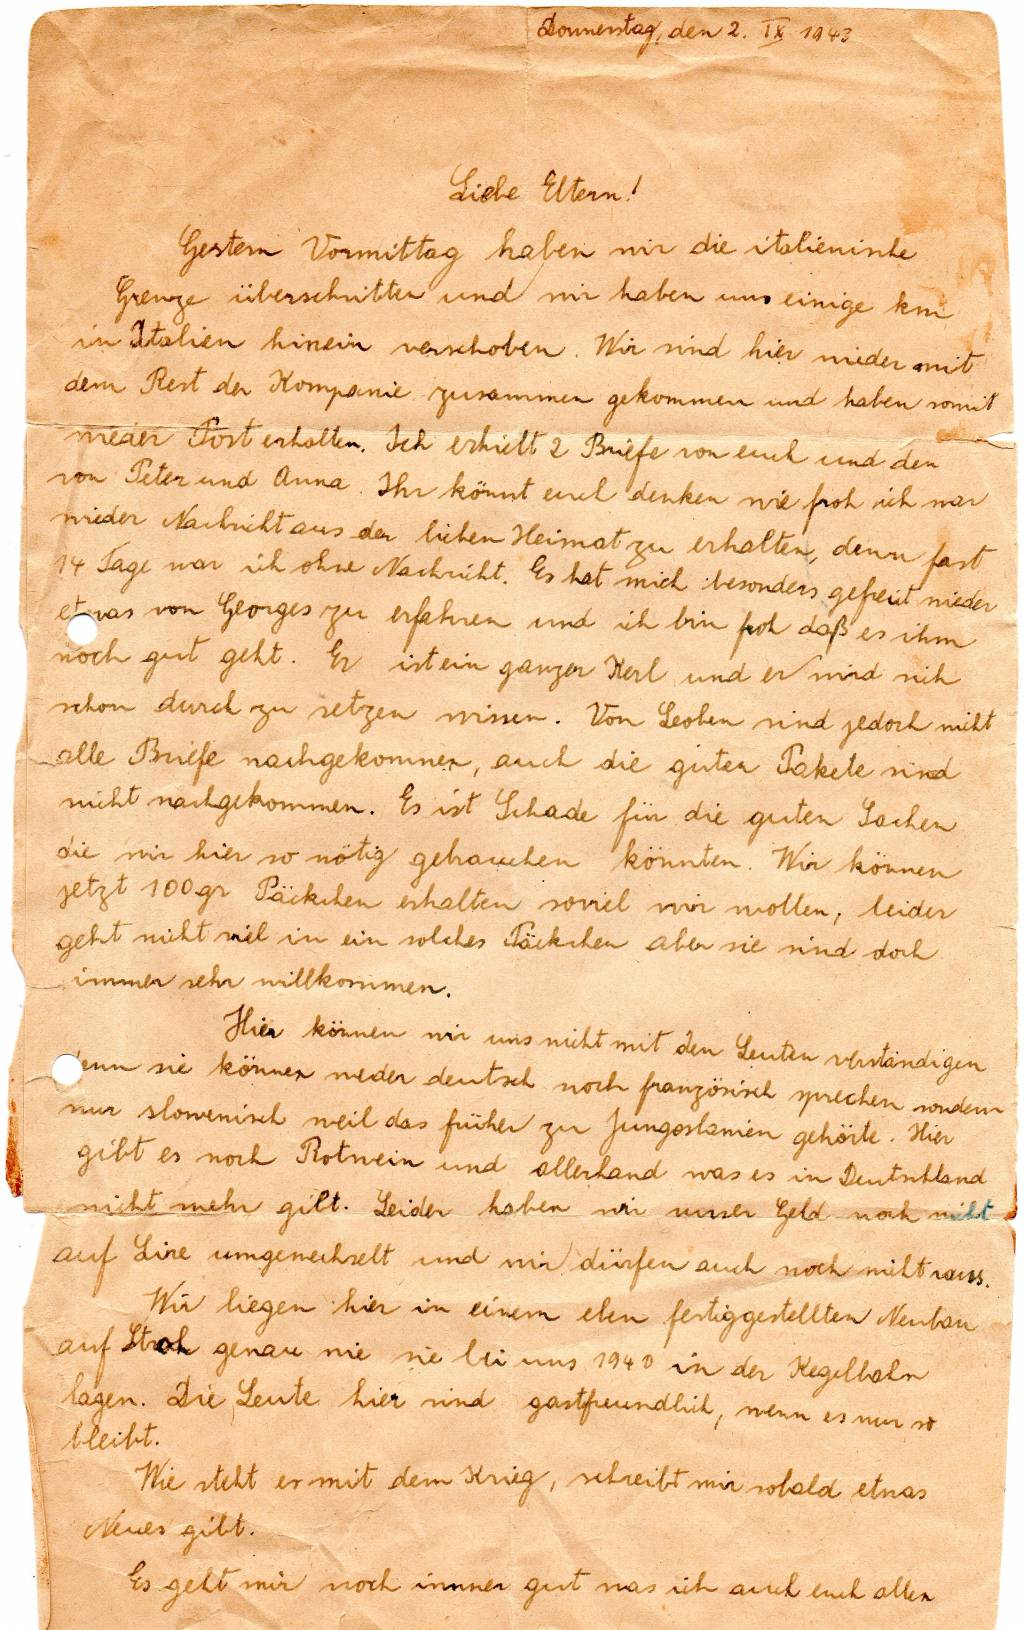 Donnerstag, den 2. IX 1943
Liebe Eltern!
Gestern Vormittag haben wir die italienische
Grenze überschritten und wir haben uns einige km
in Italien hinein verschoben. Wir sind hier wieder mit
dem Rest der Kompanie zusammen gekommen und haben somit
wieder Post erhalten. Ich erhielt 2 Briefe von euch und den
von Peter und Anna. Ihr könnt euch denken wie froh ich war
wieder Nachricht aus der lieben Heimat zu erhalten, denn fast
14 Tage war ich ohne Nachricht. Es hat mich besonders gefreut wieder
etwas von Georges zu erfahren und ich bin froh daß es ihm
noch gut geht. Er ist ein ganzer Kerl und er wird sich
schon durch zu setzen wissen. Von Leoben sind jedoch nicht
alle Briefe nachgekommen, auch die guten Pakete sind
nicht nachgekommen. Es ist Schade für die guten Sachen
die wir hier so nötig gebrauchen könnten. Wir können
jetzt 100gr Päckchen erhalten soviel wir wollen, leider
geht nicht viel in ein solches Päckchen aber sie sind doch
immer sehr willkommen.
Hier können wir uns nicht mit den Leuten verständigen
denn sie können weder deutsch noch französisch sprechen sondern
nur slowenisch weil das früher zu Jungoslawien gehörte. Hier
gibt es noch Rotwein und allerhand was es in Deutschland
nicht mehr gibt. Leider haben wir unser Geld noch nicht
auf Lire umgewechselt und wir dürfen auch noch nicht raus.
Wir liegen hier in einem eben fertiggestellten Neubau
auf Stroh genau wie sie bei uns 1940 in der Kegelbahn
lagen. Die Leute hier sind gastfreundlich, wenn es nur so
bleibt.
Wie steht es mit dem Krieg, schreibt mir sobald etwas
Neues gibt.
Es geht mir noch immer gut was ich auch euch allen